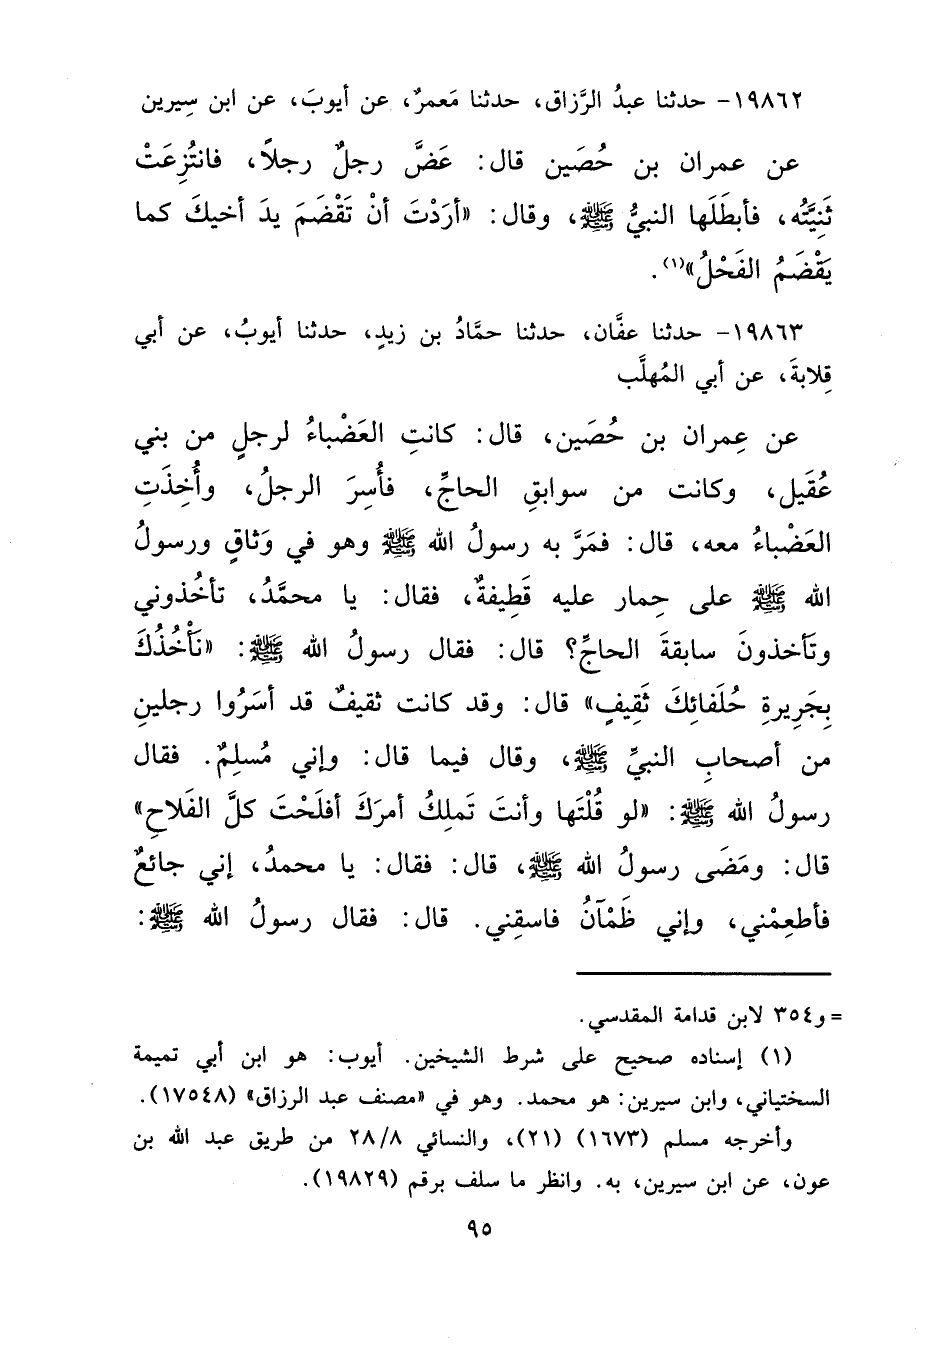 ١٩٨٦٢- حدثنا عبدُ الرَّزاق، حدثنا مَعمرٌ، عن أيوبَ، عن ابن سِيرين
عن عمران بن حُصَين قال: عَضَّ رجلٌ رجلاً، فانتُزِعَتْ
ثَنِيَّتُه، فأبطَلَها النبيُّ ﷺ، وقال: «أرَدْتَ أنْ تَقْضَمَ يدَ أخيكَ كما
يَقْضَمُ الفَحْلُ»(١).
١٩٨٦٣- حدثنا عفَّان، حدثنا حمَّادُ بن زيدٍ، حدثنا أيوبُ، عن أبي
قِلابةَ، عن أبي المُهلَّب
عن عِمران بن حُصَين، قال: كانتِ العَضْباءُ لرجلٍ من بني
عُقَيل، وكانت من سوابقِ الحاجِّ، فأُسِرَ الرجلُ، وأُخِذَتِ
العَضْباءُ معه، قال: فمَرَّ به رسولُ الله ﷺ وهو في وَثاقٍ ورسولُ
الله ﷺ على حِمار عليه قَطِيفةٌ، فقال: يا محمَّدُ، تأخُذوني
وتَأخذونَ سابقةَ الحاجِّ؟ قال: فقال رسولُ الله ﷺ: «نَأْخُذُكَ
بِجَرِيرةِ حُلَفائِكَ ثَقِيفٍ» قال: وقد كانت ثقيفٌ قد أسَرُوا رجلينِ
من أصحابِ النبيِّ ﷺ، وقال فيما قال: وإني مُسلِمٌ. فقال
رسولُ الله ﷺ: «لو قُلْتَها وأنتَ تَملِكُ أمرَكَ أفلَحْتَ كلَّ الفَلاحِ»
قال: ومَضَى رسولُ الله ﷺ، قال: فقال: يا محمدُ، إني جائعٌ
فأطعِمْني، وإني ظَمْآنُ فاسقِني. قال: فقال رسولُ الله ﷺ:
= و٣٥٤ لابن قدامة المقدسي.
(١) إسناده صحيح على شرط الشيخين. أيوب: هو ابن أبي تميمة
السختياني، وابن سيرين: هو محمد. وهو في «مصنف عبد الرزاق» (١٧٥٤٨).
وأخرجه مسلم (١٦٧٣) (٢١)، والنسائي ٢٨/٨ من طريق عبد الله بن
عون، عن ابن سيرين، به. وانظر ما سلف برقم (١٩٨٢٩).
٩٥